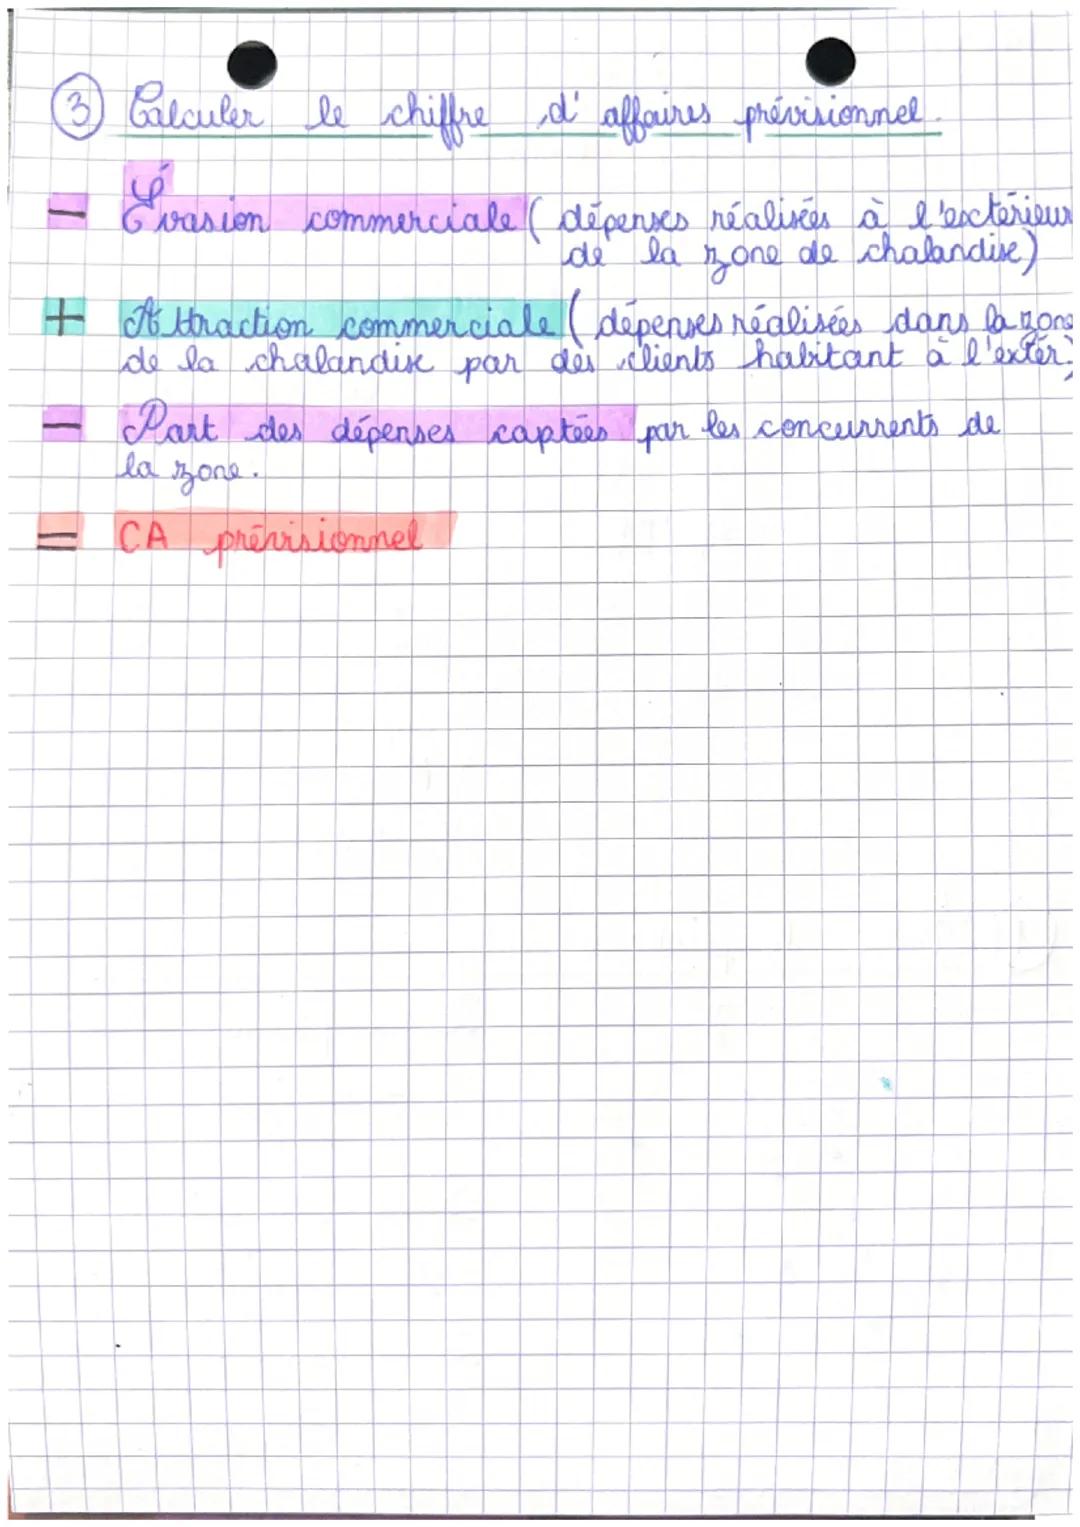 ③ Calculer le chiffre d'affaires prévisionnel.
- Évasion commerciale (dépenses réalisées à l'extérieur
de la zone de chalandise)
+ Attraction commerciale (dépenses réalisées dans la zone
de la chalandise par des clients habitant à l'extér.)
- Part des dépenses captées par les concurrents de
la zone.
= CA prévisionnel